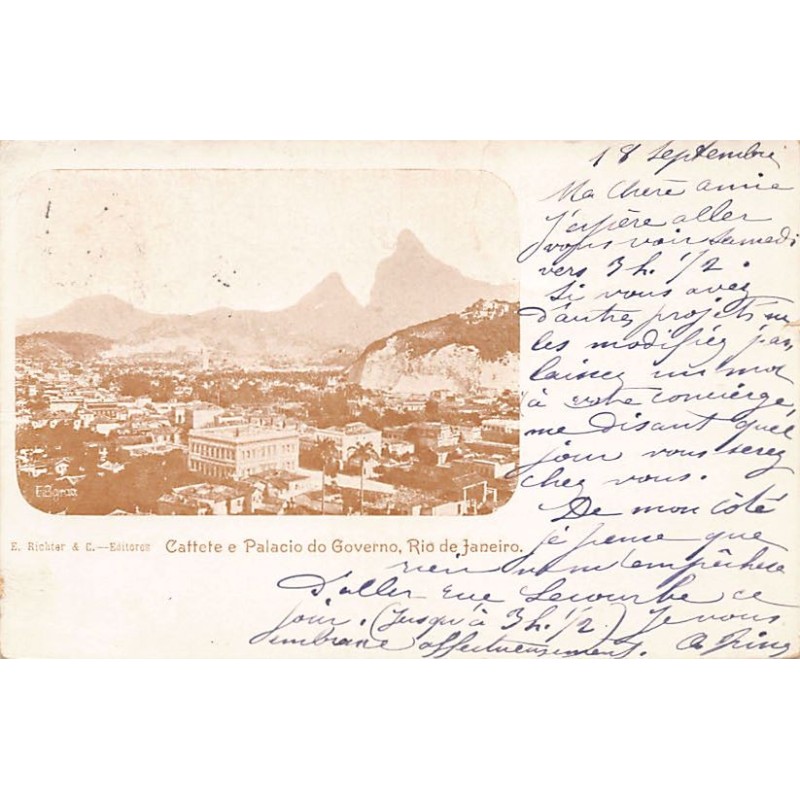 18 Septembre
Ma chère amie
J'espère aller
vous voir Samedi
vers 3 h. 1/2.
Si vous avez
d'autres projets ne
les modifiez pas
laissez un mot
à votre concierge
me disant quel
jour vous serez
chez vous.
De mon côté
je pense que
rien ne m'empêchera
D'aller rue Lecourbe ce
jour. (Jusqu'à 3 h. 1/2) Je vous
embrasse affectueusement.
E. Richter & C.—Editores Cattete e Palacio do Governo, Rio de Janeiro.